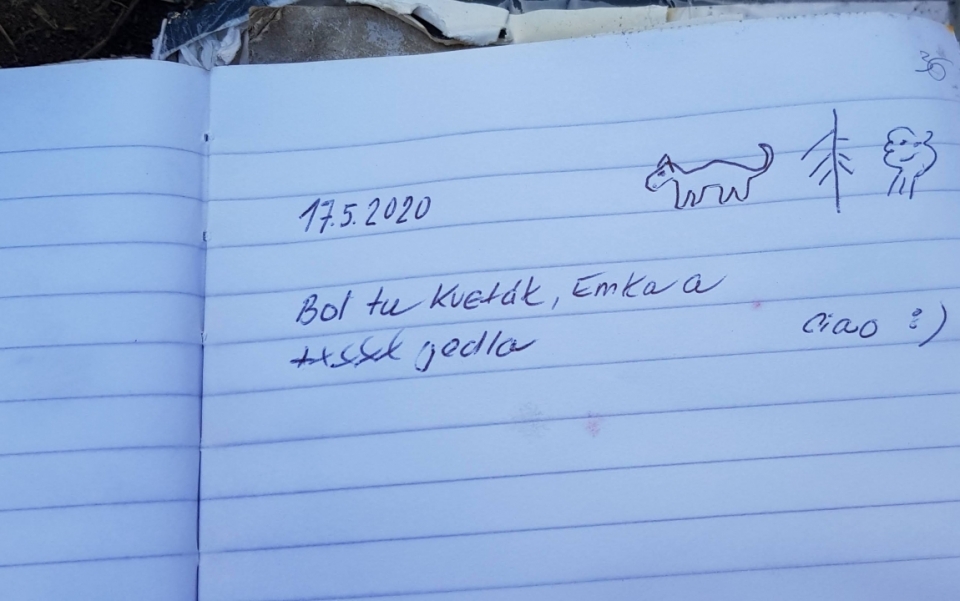 36
17.5.2020
Bol tu Kveták, Emka a
jedla
ciao :)